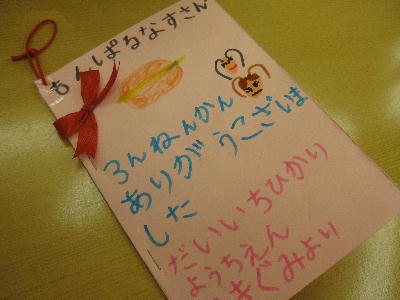 もんぱるなすさん
3ねんかん
ありがとうございま
した
だいいちひかり
ようちえん
ぐみより